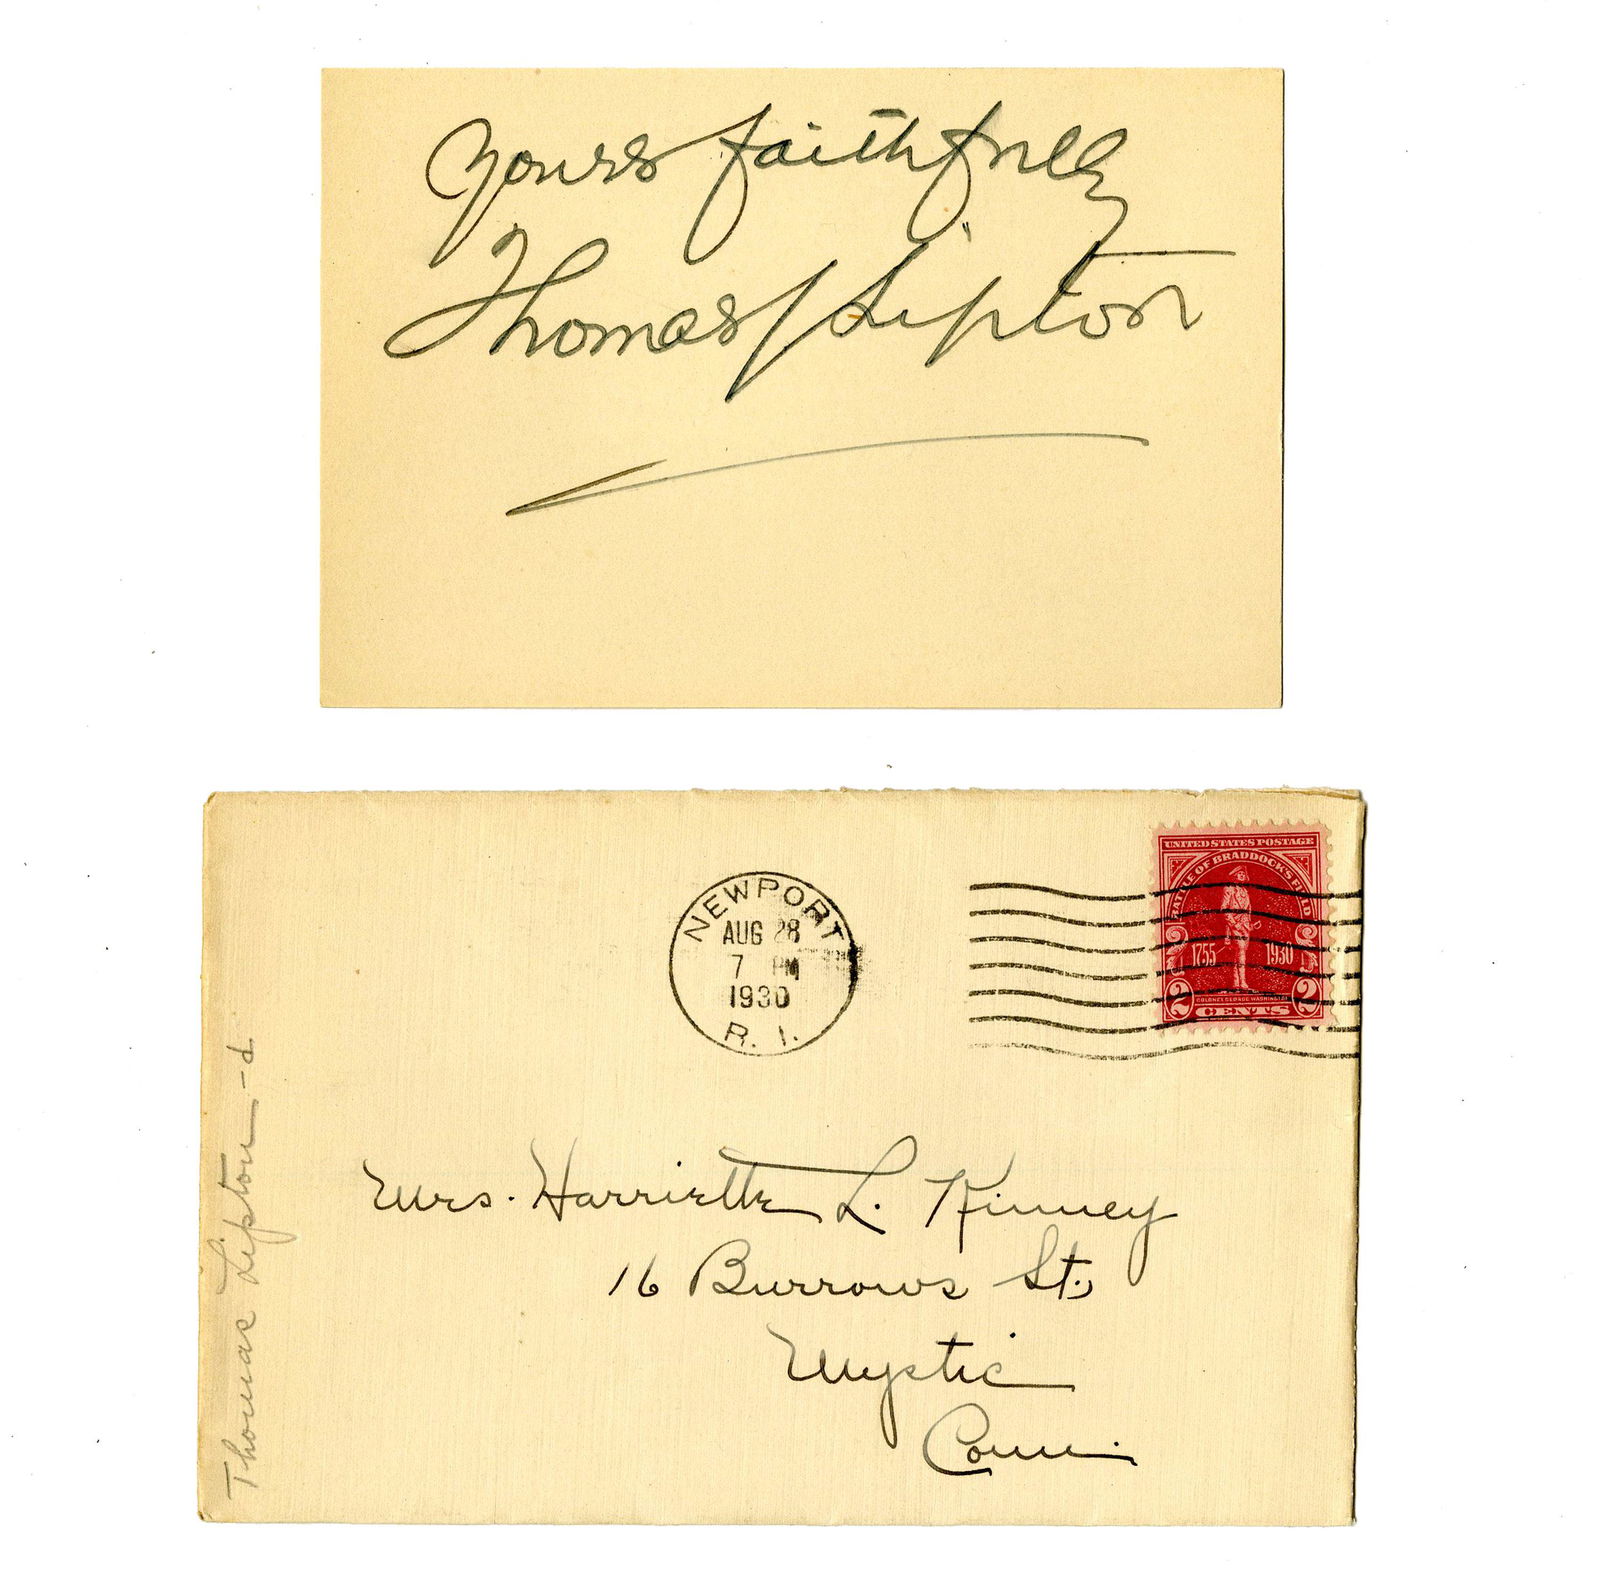 Yours faithfully
Thomas J Lipton
NEWPORT
AUG 28
7 PM
1930
R. I.
UNITED STATES POSTAGE
BATTLE OF BRADDOCK'S FIELD
1755 1930
COLONEL GEORGE WASHINGTON
2 CENTS 2
Mrs. Harriette L. Kinney
16 Burrows St.,
Mystic
Conn.
Thomas Lipton - d